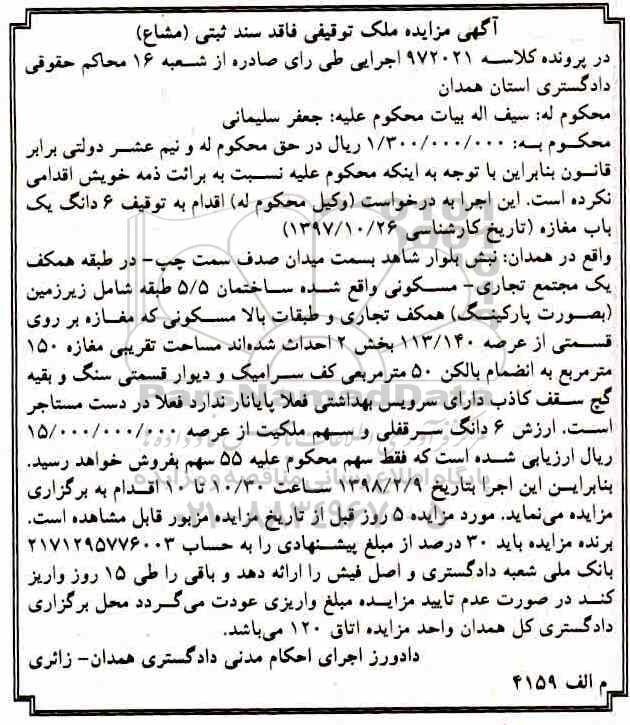 آگهی مزایده ملک توقیفی فاقد سند ثبتی (مشاع)
در پرونده کلاسه ۹۷۲۰۲۱ اجرایی طی رای صادره از شعبه ۱۶ محاکم حقوقی
دادگستری استان همدان
محکوم له: سیف اله بیات محکوم علیه: جعفر سلیمانی
محکوم به: ۱/۳۰۰/۰۰۰/۰۰۰ ریال در حق محکوم له و نیم عشر دولتی برابر
قانون بنابراین با توجه به اینکه محکوم علیه نسبت به برائت ذمه خویش اقدامی
نکرده است. این اجرا به درخواست (وکیل محکوم له) اقدام به توقیف ۶ دانگ یک
باب مغازه (تاریخ کارشناسی ۱۳۹۷/۱۰/۲۶)
واقع در همدان: نبش بلوار شاهد بسمت میدان صدف سمت چپ- در طبقه همکف
یک مجتمع تجاری- مسکونی واقع شده ساختمان ۵/۵ طبقه شامل زیرزمین
(بصورت پارکینگ) همکف تجاری و طبقات بالا مسکونی که مغازه بر روی
قسمتی از عرصه ۱۱۳/۱۴۰ بخش ۲ احداث شده‌اند مساحت تقریبی مغازه ۱۵۰
مترمربع به انضمام بالکن ۵۰ مترمربعی کف سرامیک و دیوار قسمتی سنگ و بقیه
گچ سقف کاذب دارای سرویس بهداشتی فعلا پایانار ندارد فعلا در دست مستاجر
است. ارزش ۶ دانگ سرقفلی و سهم ملکیت از عرصه ۱۵/۰۰۰/۰۰۰/۰۰۰
ریال ارزیابی شده است که فقط سهم محکوم علیه ۵۵ سهم بفروش خواهد رسید.
بنابراین این اجرا بتاریخ ۱۳۹۸/۲/۹ ساعت ۱۰/۳۰ تا ۱۰ اقدام به برگزاری
مزایده می‌نماید. مورد مزایده ۵ روز قبل از تاریخ مزایده مزبور قابل مشاهده است.
برنده مزایده باید ۳۰ درصد از مبلغ پیشنهادی را به حساب ۲۱۷۱۲۹۵۷۷۶۰۰۳
بانک ملی شعبه دادگستری و اصل فیش را ارائه دهد و باقی را طی ۱۵ روز واریز
کند در صورت عدم تایید مزایده مبلغ واریزی عودت می‌گردد محل برگزاری
دادگستری کل همدان واحد مزایده اتاق ۱۲۰ می‌باشد.
دادورز اجرای احکام مدنی دادگستری همدان- زائری
م الف ۴۱۵۹
ParsNamadData